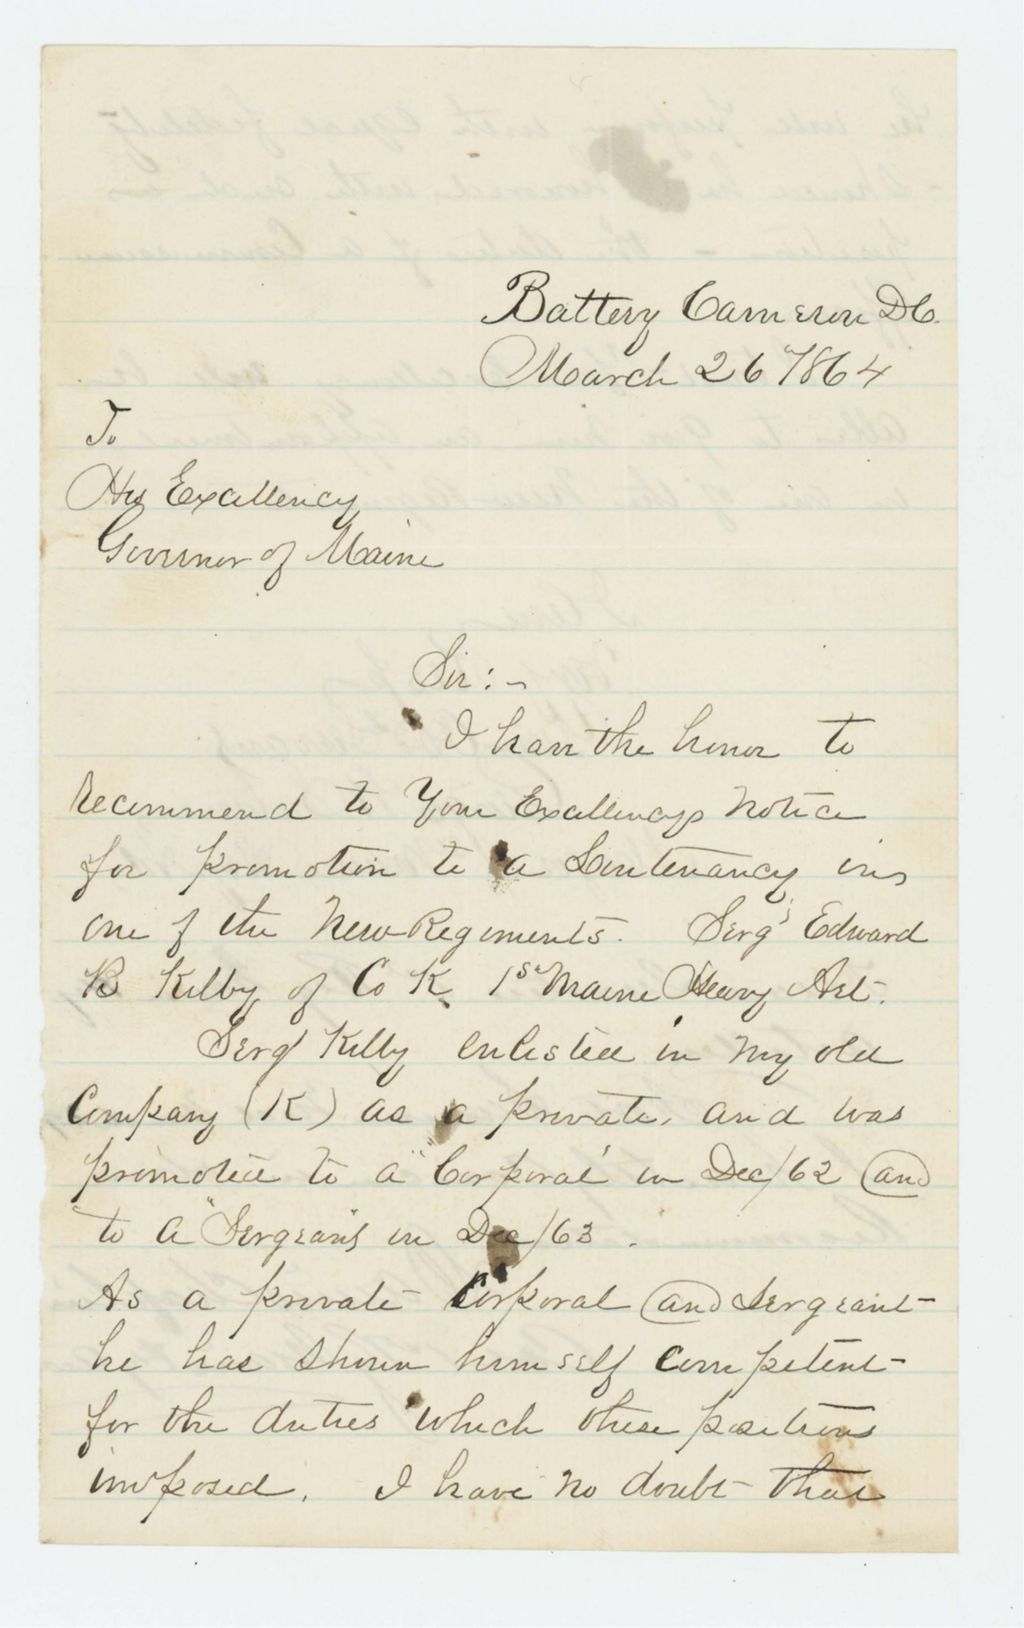 Battery Cameron DC.
March 26" 1864
To
His Excellency
Governor of Maine
Sir:-
I have the honor to
recommend to Your Excellencys Notice
for promotion to a Lieutenancy in
one of the New Regiments. Sergt Edward
B Kilby of Co K 1st Maine Heavy Art.
Sergt Kilby enlisted in my old
Company (K) as a private, and was
promoted to a "Corporal" in Dec/62 and
to a "Sergeant" in Dec/63.
As a private Corporal and Sergeant
he has shown himself competent
for the duties which these positions
imposed. I have no doubt that